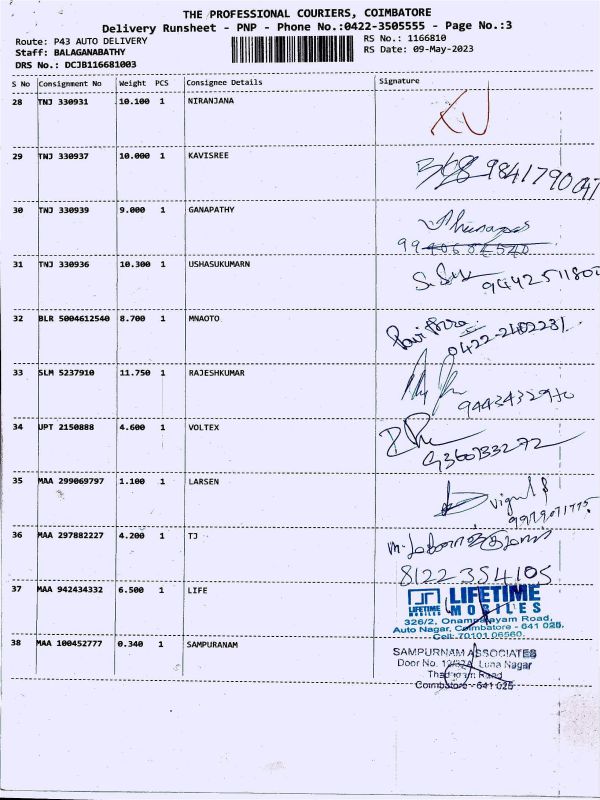 THE PROFESSIONAL COURIERS, COIMBATORE
Delivery Runsheet - PNP - Phone No.:0422-3505555 - Page No.:3
Route: P43 AUTO DELIVERY RS No.: 1166810
Staff: BALAGANABATHY RS Date: 09-May-2023
DRS No.: DCJB116681003
S No Consignment No Weight PCS Consignee Details Signature
28 TNJ 330931 10.100 1 NIRANJANA
29 TNJ 330937 10.000 1 KAVISREE 9841790047
30 TNJ 330939 9.000 1 GANAPATHY
9940684540
31 TNJ 330936 10.300 1 USHASUKUMARN 944251180
32 BLR 5004612540 8.700 1 MNAOTO
0422-2402231
33 SLM 5237910 11.750 1 RAJESHKUMAR
9443432970
34 UPT 2150888 4.600 1 VOLTEX
9360733272
35 MAA 299069797 1.100 1 LARSEN
36 MAA 297882227 4.200 1 TJ
8122354105
37 MAA 942434332 6.500 1 LIFE
LIFETIME
MOBILES
LIFETIME
MOBILES
326/2, Onampalayam Road,
Auto Nagar, Coimbatore - 641 025.
Cell: 70101 06560.
38 MAA 100452777 0.340 1 SAMPURANAM
SAMPURNAM ASSOCIATES
Door No. Luna Nagar
Road
Coimbatore - 641 025